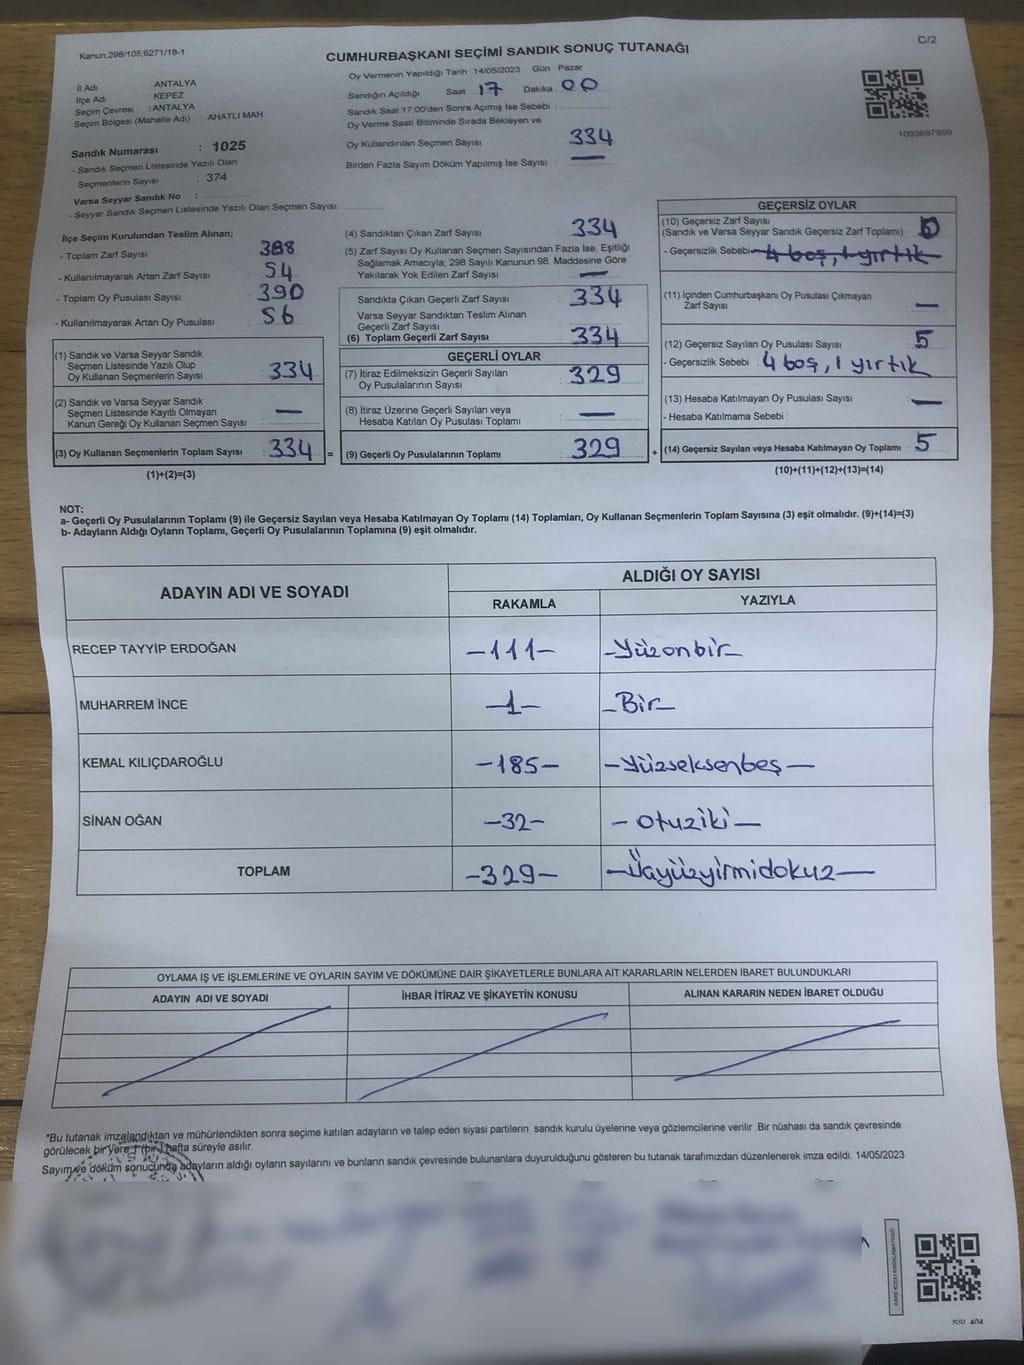 Kanun.298/105,6271/18-1
C/2
CUMHURBAŞKANI SEÇİMİ SANDIK SONUÇ TUTANAĞI
İl Adı : ANTALYA
İlçe Adı : KEPEZ
Seçim Çevresi : ANTALYA
Seçim Bölgesi (Mahalle Adı) AHATLI MAH
Sandık Numarası : 1025
- Sandık Seçmen Listesinde Yazılı Olan
Seçmenlerin Sayısı : 374
Varsa Seyyar Sandık No :
- Seyyar Sandık Seçmen Listesinde Yazılı Olan Seçmen Sayısı:
Oy Vermenin Yapıldığı Tarih 14/05/2023 Gün Pazar
Sandığın Açıldığı Saat 17 Dakika 00
Sandık Saat 17:00'den Sonra Açmış İse Sebebi :
Oy Verme Saati Bitiminde Sırada Bekleyen ve
Oy Kullandırılan Seçmen Sayısı : 334
Birden Fazla Sayım Döküm Yapılmış İse Sayısı : —
1093697959
İlçe Seçim Kurulundan Teslim Alınan;
- Toplam Zarf Sayısı : 388
- Kullanılmayarak Artan Zarf Sayısı : 54
- Toplam Oy Pusulası Sayısı : 390
- Kullanılmayarak Artan Oy Pusulası : 56
(1) Sandık ve Varsa Seyyar Sandık
Seçmen Listesinde Yazılı Olup
Oy Kullanan Seçmenlerin Sayısı : 334
(2) Sandık ve Varsa Seyyar Sandık
Seçmen Listesinde Kayıtlı Olmayan
Kanun Gereği Oy Kullanan Seçmen Sayısı : —
(3) Oy Kullanan Seçmenlerin Toplam Sayısı : 334 =
(1)+(2)=(3)
(4) Sandıktan Çıkan Zarf Sayısı : 334
(5) Zarf Sayısı Oy Kullanan Seçmen Sayısından Fazla İse, Eşitliği
Sağlamak Amacıyla; 298 Sayılı Kanunun 98. Maddesine Göre
Yakılarak Yok Edilen Zarf Sayısı : —
Sandıkta Çıkan Geçerli Zarf Sayısı : 334
Varsa Seyyar Sandıktan Teslim Alınan
Geçerli Zarf Sayısı :
(6) Toplam Geçerli Zarf Sayısı : 334
GEÇERLİ OYLAR
(7) İtiraz Edilmeksizin Geçerli Sayılan
Oy Pusulalarının Sayısı : 329
(8) İtiraz Üzerine Geçerli Sayılan veya
Hesaba Katılan Oy Pusulası Toplamı : —
(9) Geçerli Oy Pusulalarının Toplamı : 329 +
GEÇERSİZ OYLAR
(10) Geçersiz Zarf Sayısı
(Sandık ve Varsa Seyyar Sandık Geçersiz Zarf Toplamı) :
- Geçersizlik Sebebi 4 boş, 1 yırtık
(11) İçinden Cumhurbaşkanı Oy Pusulası Çıkmayan
Zarf Sayısı : —
(12) Geçersiz Sayılan Oy Pusulası Sayısı : 5
- Geçersizlik Sebebi : 4 boş, 1 yırtık
(13) Hesaba Katılmayan Oy Pusulası Sayısı : —
- Hesaba Katılmama Sebebi :
(14) Geçersiz Sayılan veya Hesaba Katılmayan Oy Toplamı : 5
(10)+(11)+(12)+(13)=(14)
NOT:
a- Geçerli Oy Pusulalarının Toplamı (9) ile Geçersiz Sayılan veya Hesaba Katılmayan Oy Toplamı (14) Toplamları, Oy Kullanan Seçmenlerin Toplam Sayısına (3) eşit olmalıdır. (9)+(14)=(3)
b- Adayların Aldığı Oyların Toplamı, Geçerli Oy Pusulalarının Toplamına (9) eşit olmalıdır.
ADAYIN ADI VE SOYADI
ALDIĞI OY SAYISI
RAKAMLA YAZIYLA
RECEP TAYYİP ERDOĞAN -111- -Yüzonbir-
MUHARREM İNCE -1- -Bir-
KEMAL KILIÇDAROĞLU -185- -Yüzseksenbeş-
SİNAN OĞAN -32- -otuziki-
TOPLAM -329- -Üçyüzyirmidokuz-
OYLAMA İŞ VE İŞLEMLERİNE VE OYLARIN SAYIM VE DÖKÜMÜNE DAİR ŞİKAYETLERLE BUNLARA AİT KARARLARIN NELERDEN İBARET BULUNDUKLARI
ADAYIN ADI VE SOYADI İHBAR İTİRAZ VE ŞİKAYETİN KONUSU ALINAN KARARIN NEDEN İBARET OLDUĞU
*Bu tutanak imzalandıktan ve mühürlendikten sonra seçime katılan adayların ve talep eden siyasi partilerin sandık kurulu üyelerine veya gözlemcilerine verilir. Bir nüshası da sandık çevresinde
görülecek bir yere 1 (bir) hafta süreyle asılır.
Sayım ve döküm sonucunda adayların aldığı oyların sayılarını ve bunların sandık çevresinde bulunanlara duyurulduğunu gösteren bu tutanak tarafımızdan düzenlenerek imza edildi. 14/05/2023
KARE KODU KARALAMAYINIZ!